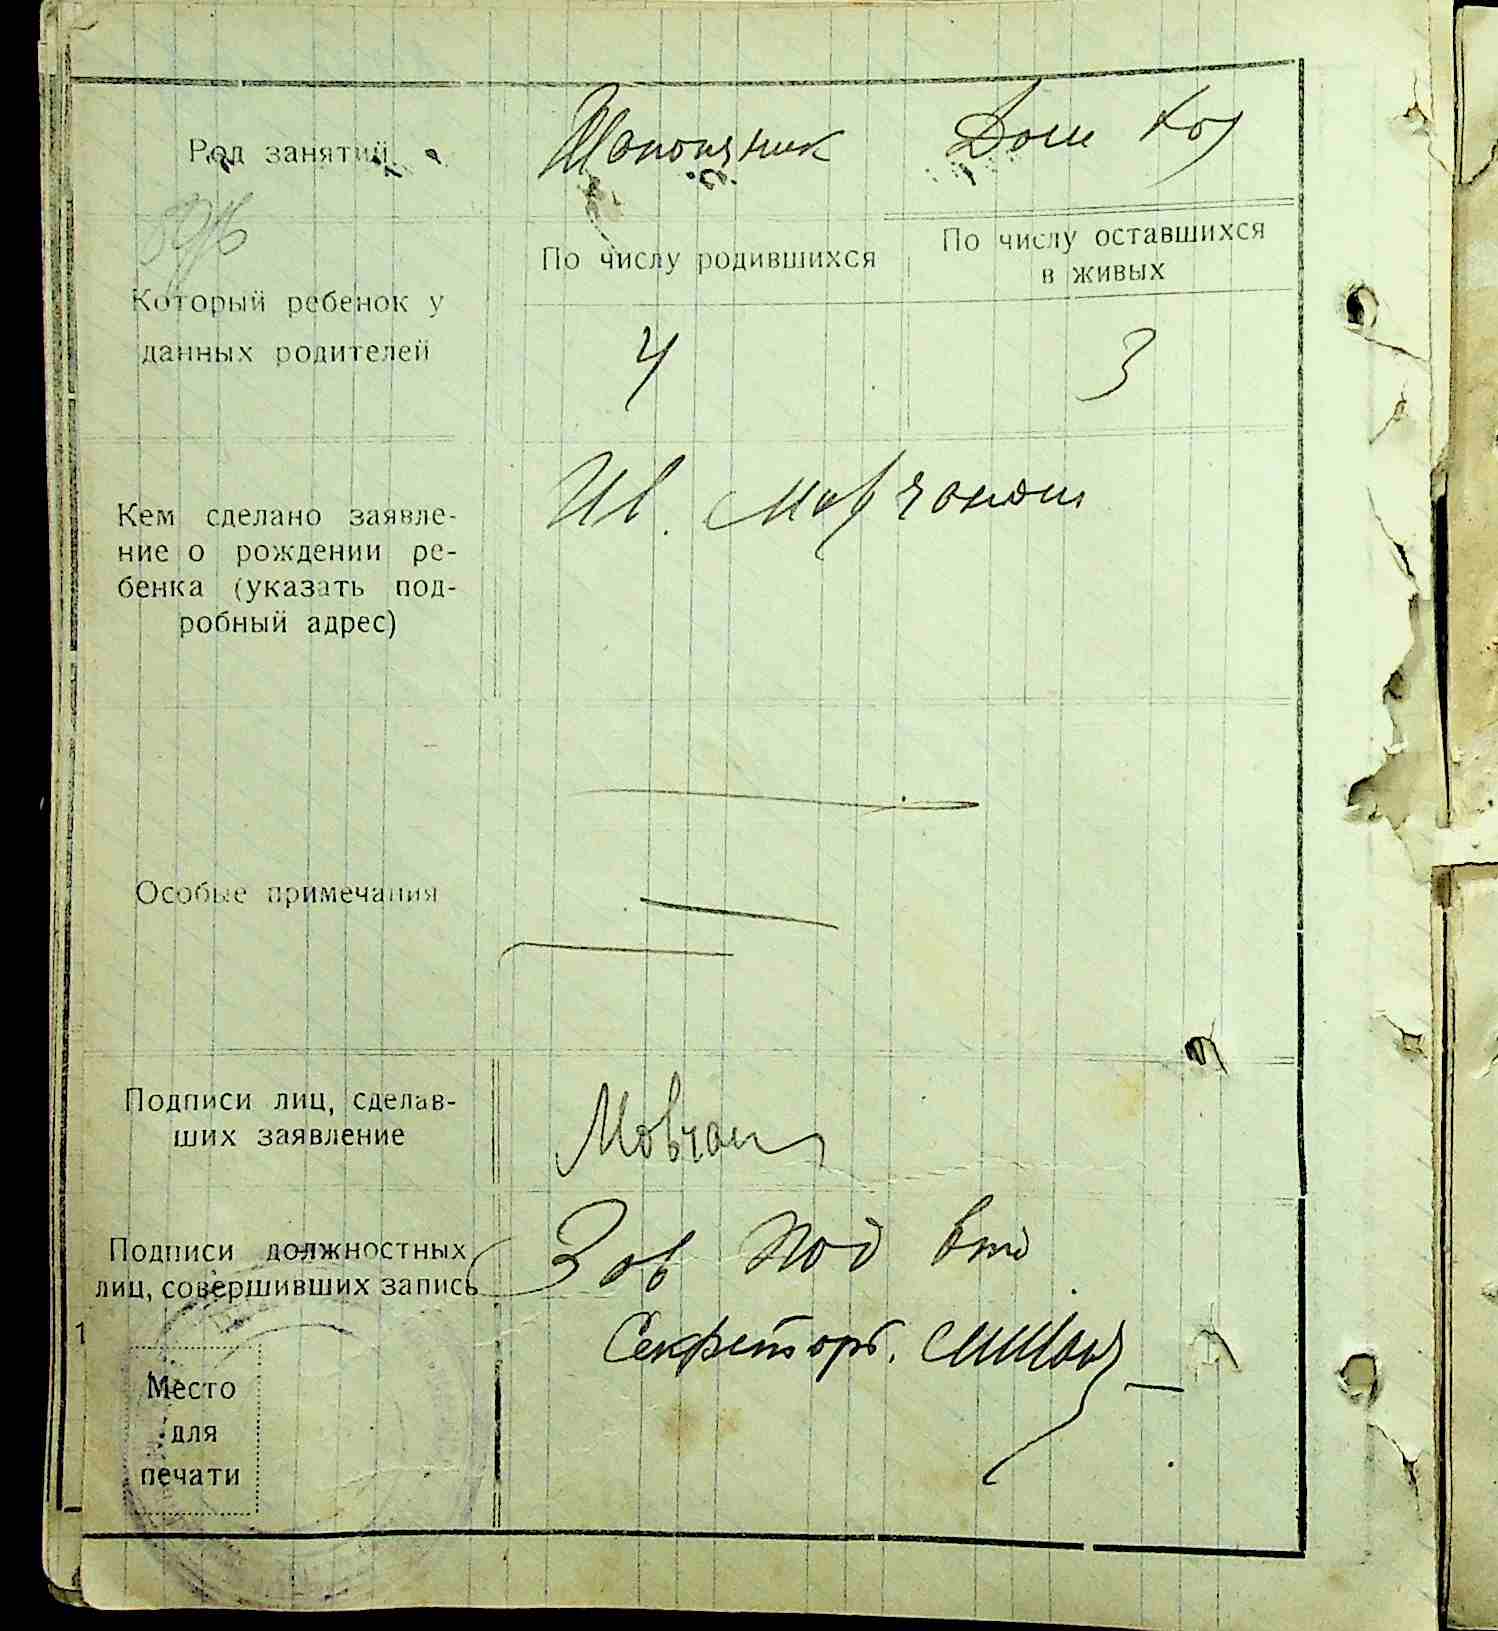 Род занятий Дом хоз
По числу родившихся По числу оставшихся
в живых
Который ребенок у
данных родителей 4 3
Кем сделано заявле-
ние о рождении ре-
бенка (указать под-
робный адрес)
Особые примечания
Подписи лиц, сделав-
ших заявление Мовчан
Подписи должностных
лиц, совершивших запись Зав под
Секретарь.
1
Место
для
печати